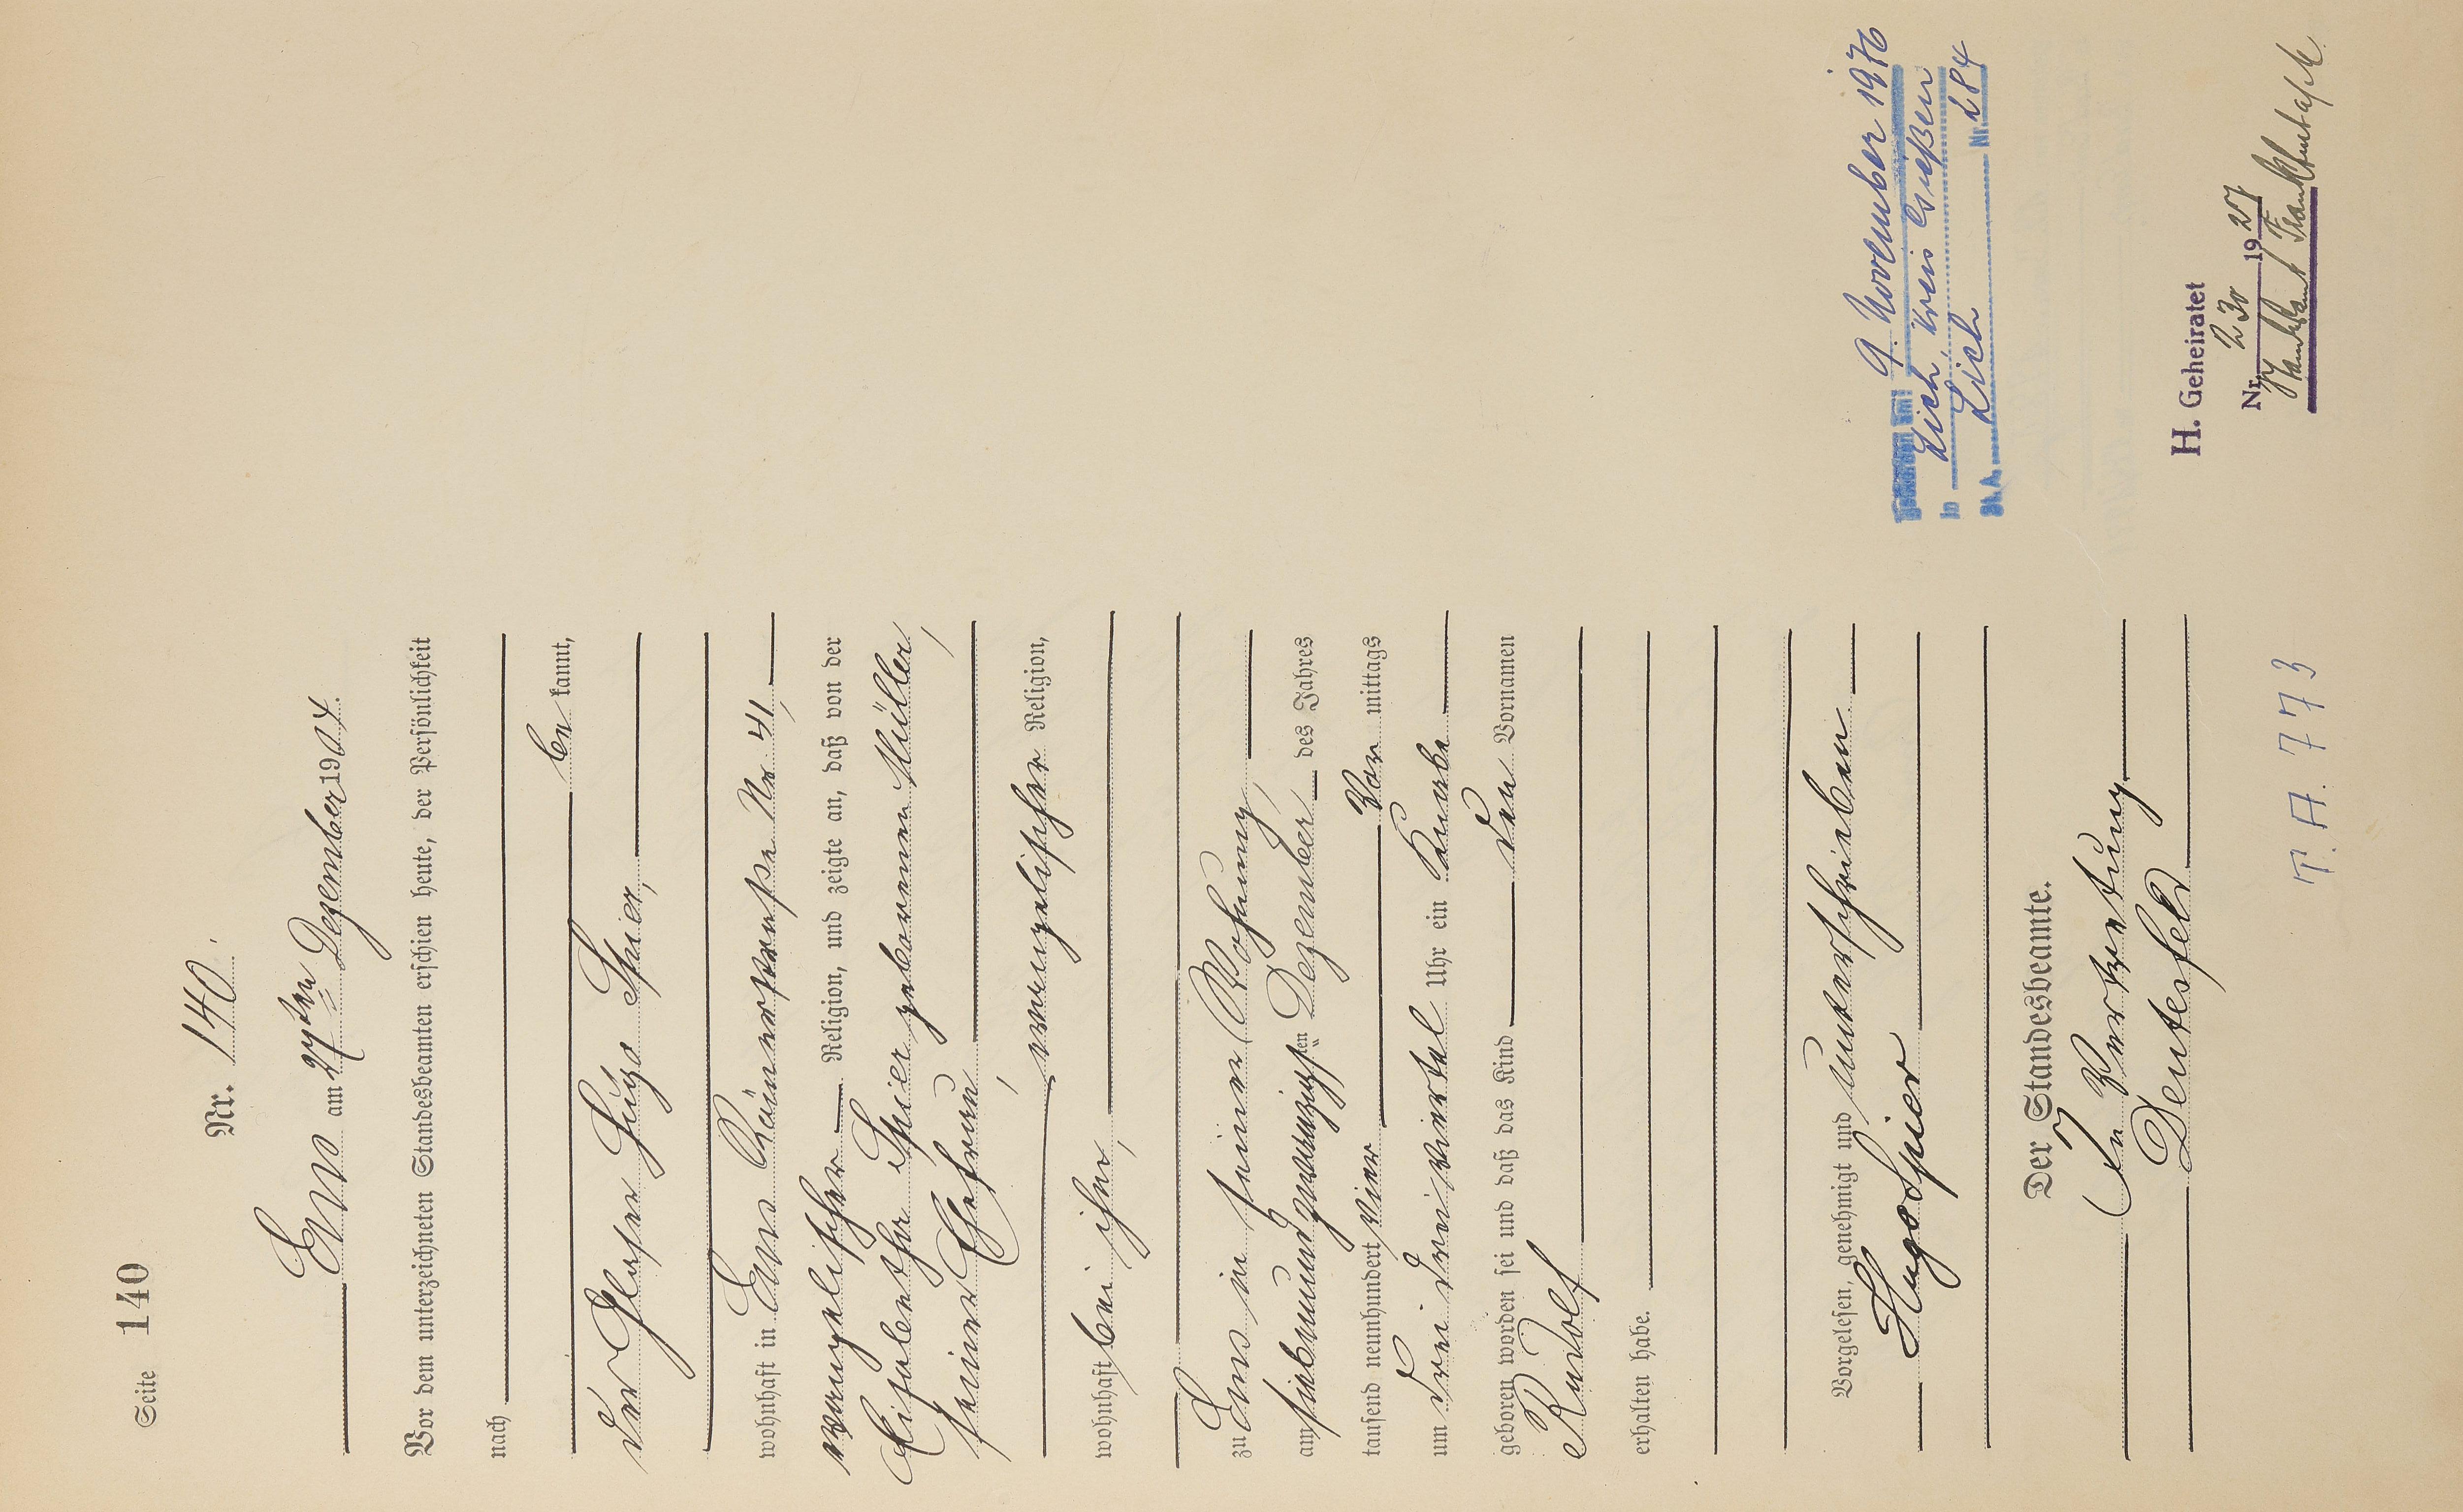 Seite 140
Nr. 140.
Ems am 27ten Dezember 1904.
Vor dem unterzeichneten Standesbeamten erschien heute, der Persönlichkeit
nach
be kannt,
der Glaser Hugo Spier,
wohnhaft in Ems Römerstraße Nr 41,
evangelischer Religion, und zeigte an, daß von der
Elisabethe Spier geborenen Müller,
seiner Ehefrau,
evangelischer Religion,
wohnhaft bei ihm,
zu Ems in seiner Wohnung,
am siebenundzwanzigsten Dezember des Jahres
tausend neunhundert vier Vor mittags
um drei dreiviertel Uhr ein Knabe
geboren worden sei und daß das Kind den Vornamen
Rudolf
erhalten habe.
Vorgelesen, genehmigt und unterschrieben
Hugo Spier
Der Standesbeamte.
In Vertretung
9. November 1976
in Lich, Kreis Gießen
St.A. Lich Nr. 284
H. Geheiratet
Nr. 230 1927
Standesamt Frankfurt
T. A. 773